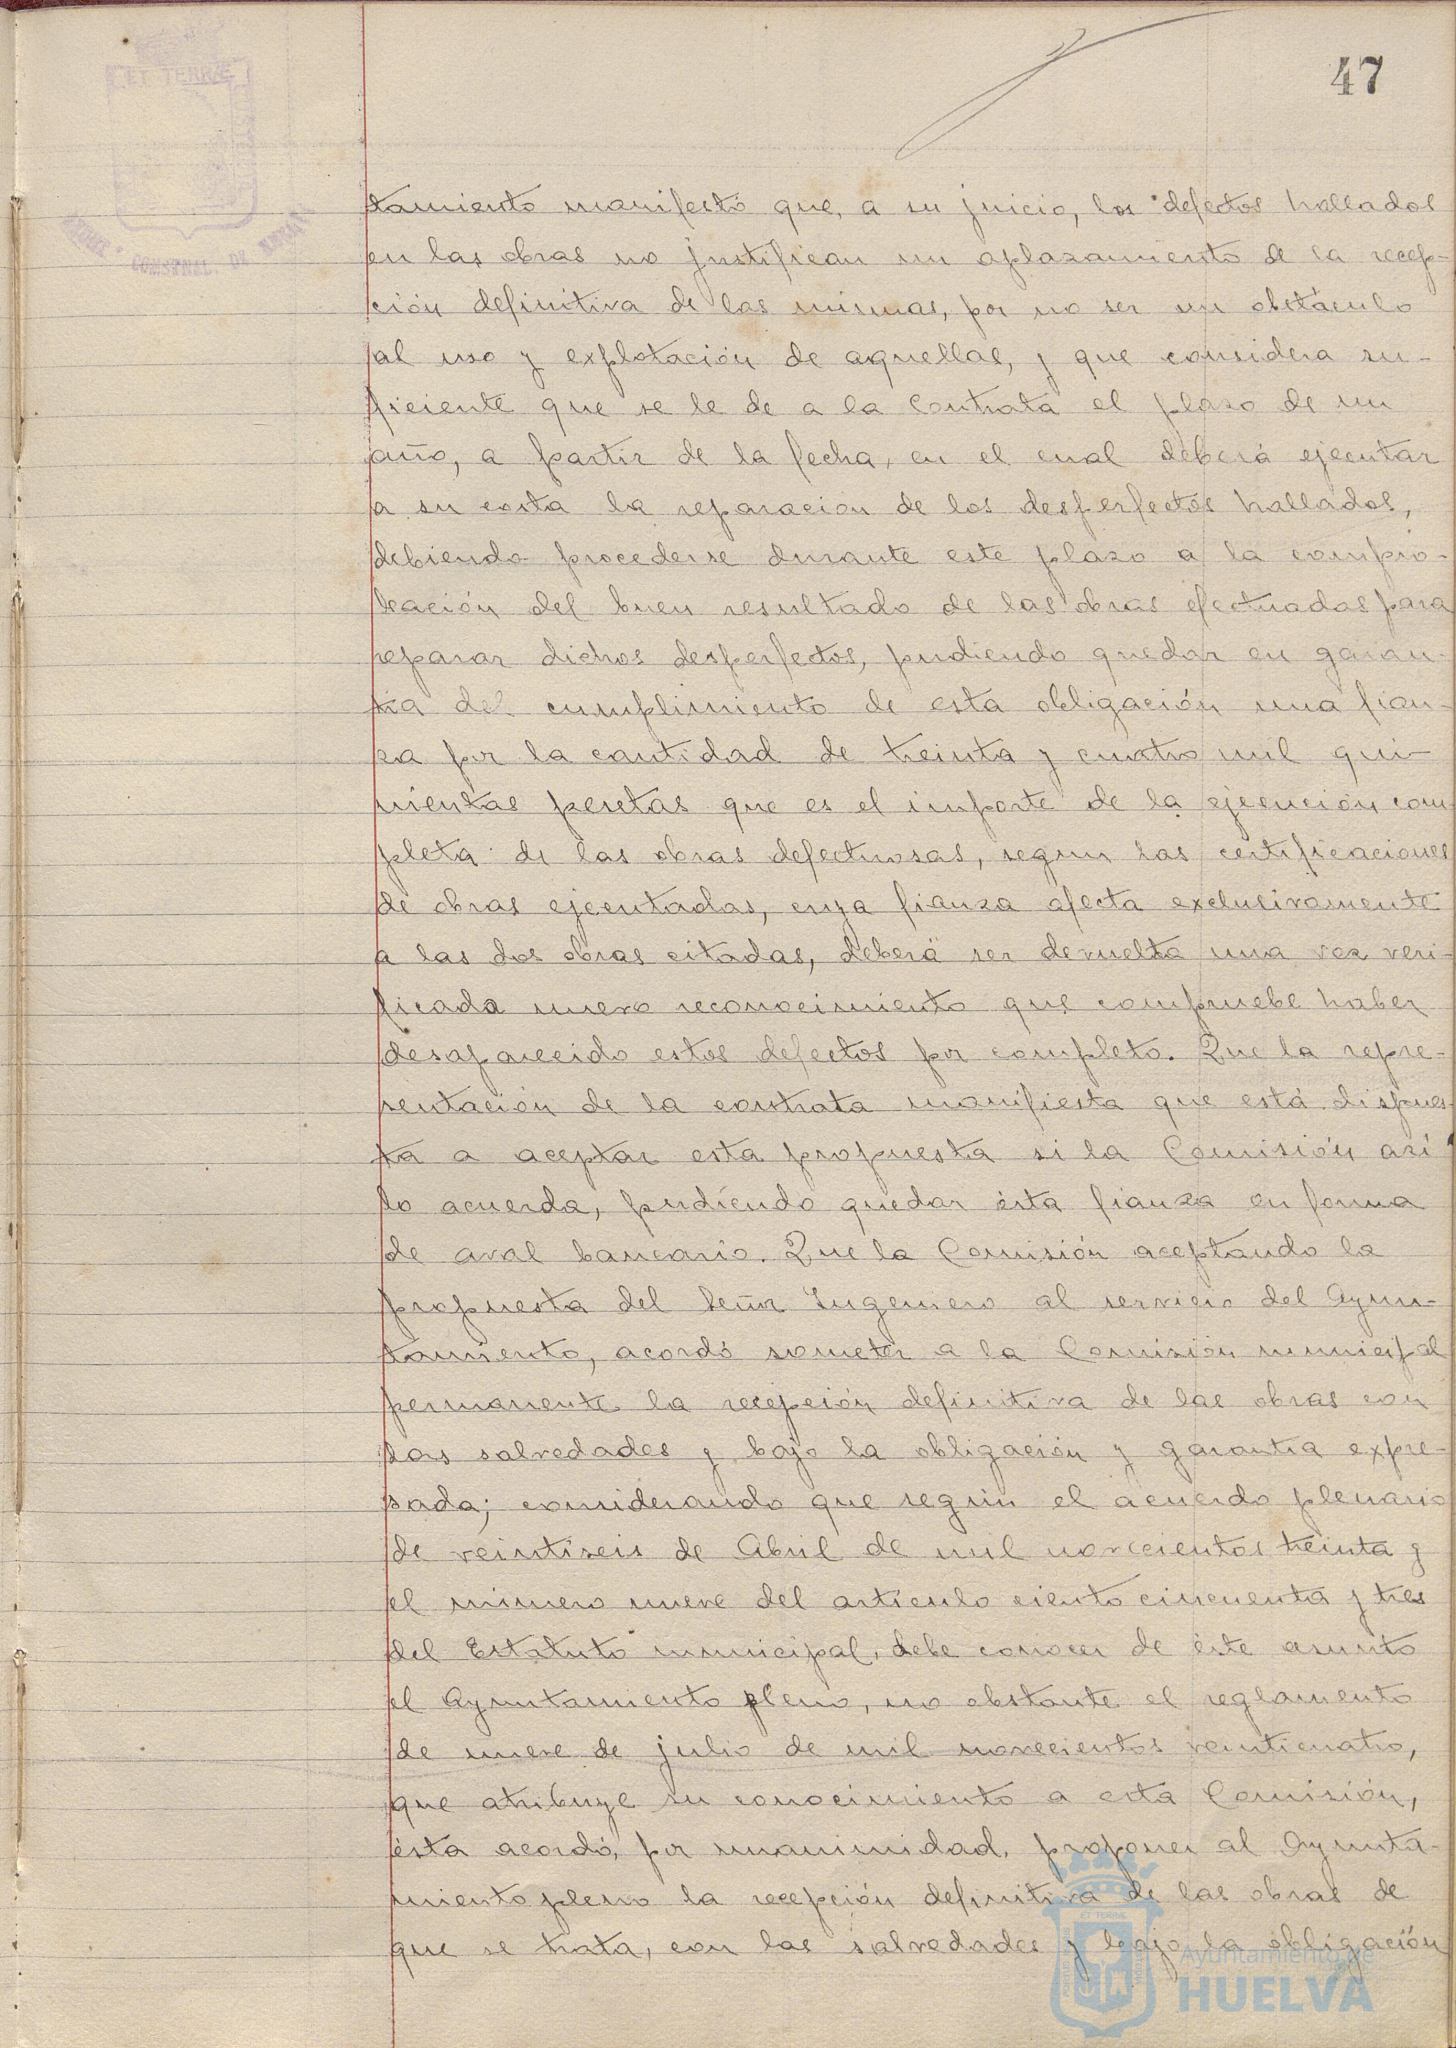 47
ET TERRÆ
tamiento manifestó que, a su juicio, los defectos hallados
en las obras no justifican un aplazamiento de la recep-
ción definitiva de las mismas, por no ser un obstáculo
al uso y explotación de aquellas, y que considera su-
ficiente que se le de a la Contrata el plazo de un
año, a partir de la fecha, en el cual deberá ejecutar
a su costa la reparación de los desperfectos hallados,
debiendo procederse durante este plazo a la compro-
bación del buen resultado de las obras efectuadas para
reparar dichos desperfectos, pudiendo quedar en garan-
tia del cumplimiento de esta obligación una fian-
za por la cantidad de treinta y cuatro mil qui-
nientas pesetas que es el importe de la ejecución com-
pleta de las obras defectuosas, segun las certificaciones
de obras ejecutadas, cuya fianza afecta exclusivamente
a las dos obras citadas, deberá ser devuelta una vez veri-
ficada nuevo reconocimiento que compruebe haber
desaparecido estos defectos por completo. Que la repre-
sentación de la contrata manifiesta que está dispues-
ta a aceptar esta propuesta si la Comisión así
lo acuerda, pudiendo quedar ésta fianza en forma
de aval bancario. Que la Comisión aceptando la
propuesta del Señor Ingeniero al servicio del Ayun-
tamiento, acordó someter a la Comisión municipal
permanente la recepción definitiva de las obras con
las salvedades y bajo la obligación y garantia expre-
sada; considerando que según el acuerdo plenario
de veintiseis de Abril de mil novecientos treinta y
el número nueve del artículo ciento cincuenta y tres
del Estatuto municipal, debe conocer de éste asunto
el Ayuntamiento pleno, no obstante el reglamento
de nueve de julio de mil novecientos veinticuatro,
que atribuye su conocimiento a esta Comisión,
ésta acordó, por unanimidad, proponer al Ayunta-
miento pleno la recepción definitiva de las obras de
que se trata, con las salvedades y bajo la obligación
Ayuntamiento de
HUELVA